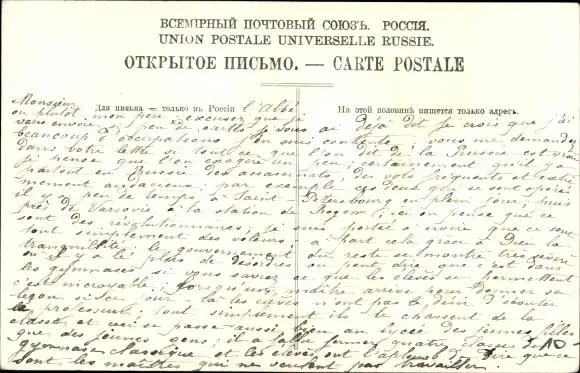 ВСЕМІРНЫЙ ПОЧТОВЫЙ СОЮЗЪ. РОССІЯ.
UNION POSTALE UNIVERSELLE RUSSIE.
ОТКРЫТОЕ ПИСЬМО. — CARTE POSTALE
Для письма — только въ Россіи
На этой половинѣ пишется только адресъ.
Monsieur l'Abé
ou plutôt, mon père, excusez que je
vous envoie peu de cartes je vous ai déjà dit je crois que j'ai
beaucoup d'occupations j'en suis contente; vous me demandez
dans votre lettre si tout ce que l'on dit de la Russie est vrai
je pense que l'on exagère un peu, certainement qu'il y a
partout en Russie des assassinats, des vols fréquents et extrê
mement audacieux; par exemple ces deux qui se sont opérés
il y a peu de temps à Saint-Petersbourg en plein jour, puis
près de Varsovie à la station de Rogow, ici on pense que ce
sont des révolutionnaires, je suis portée à croire que ce sont
tout simplement des voleurs; à part cela grâce à Dieu la
tranquillité, le gouvernement du reste se montre très sévère
où il y a le plus de désordres on peut dire que c'est dans
les gymnases si vous saviez ce que les élèves se permettent
c'est incroyable; lorsqu'un maître arrive pour donner sa
leçon si ce jour là les élèves n'ont pas le désir d'écouter
le professeur; tout simplement ils le chassent de la
classe, et ceci se passe aussi bien au lycée des jeunes filles
que des jeunes gens, il a fallu fermer quatre classes de
gymnase classique et les élèves ont l'aplomb de dire que ce
sont les maîtres qui ne veulent pas travailler.